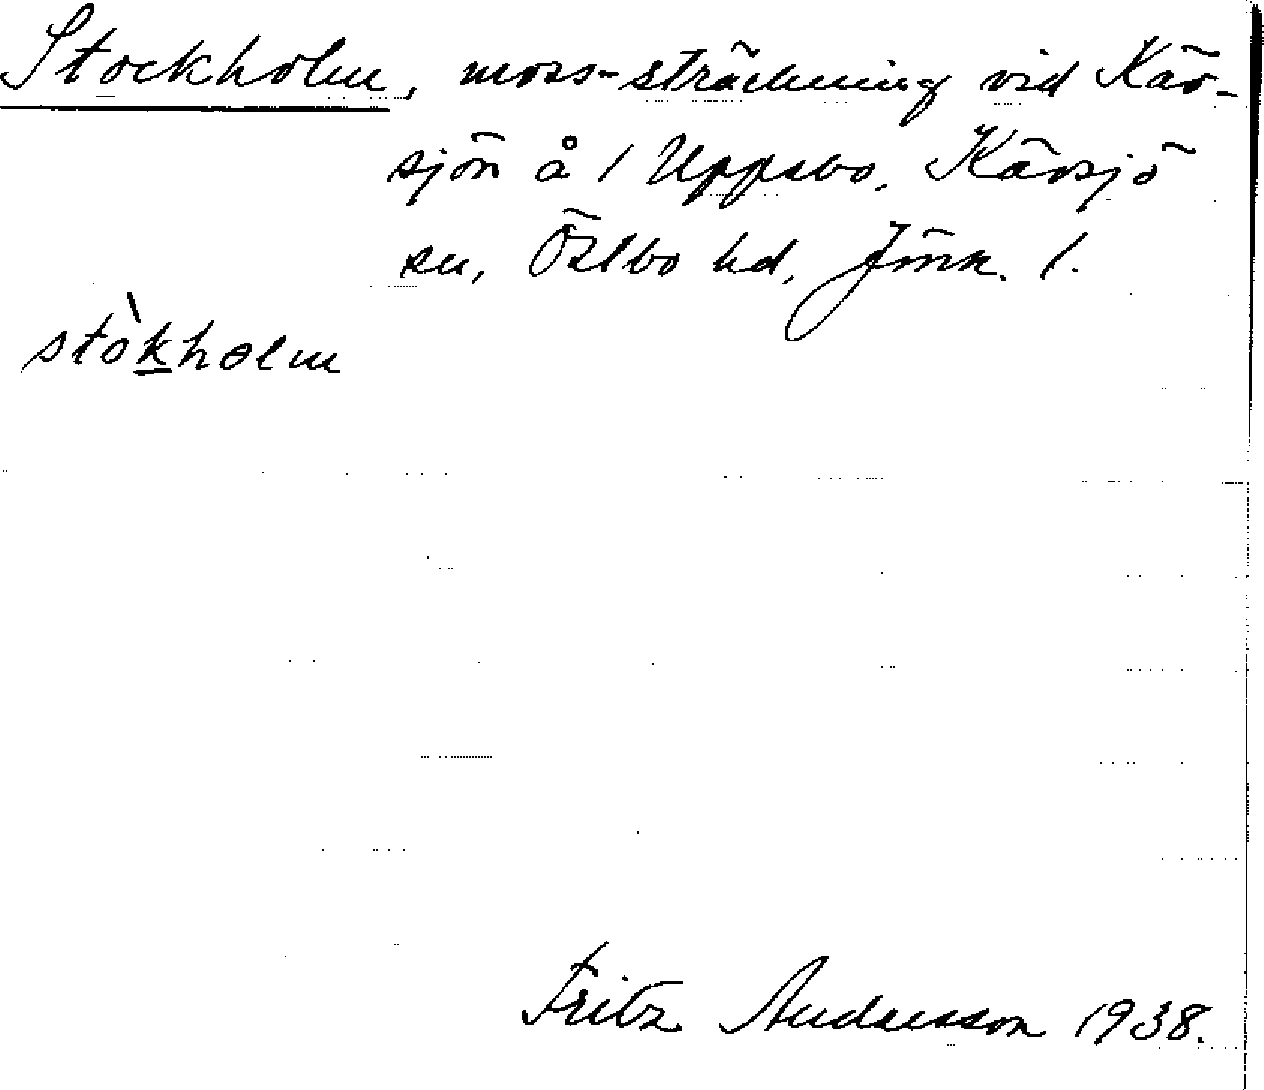 Stockholm, moss-sträckning vid Kär-
sjön å 1 Uppsbo, Kärsjö
sn, Östbo hd, Jönk. l.
stòkholm
Fritz Andersson 1938.